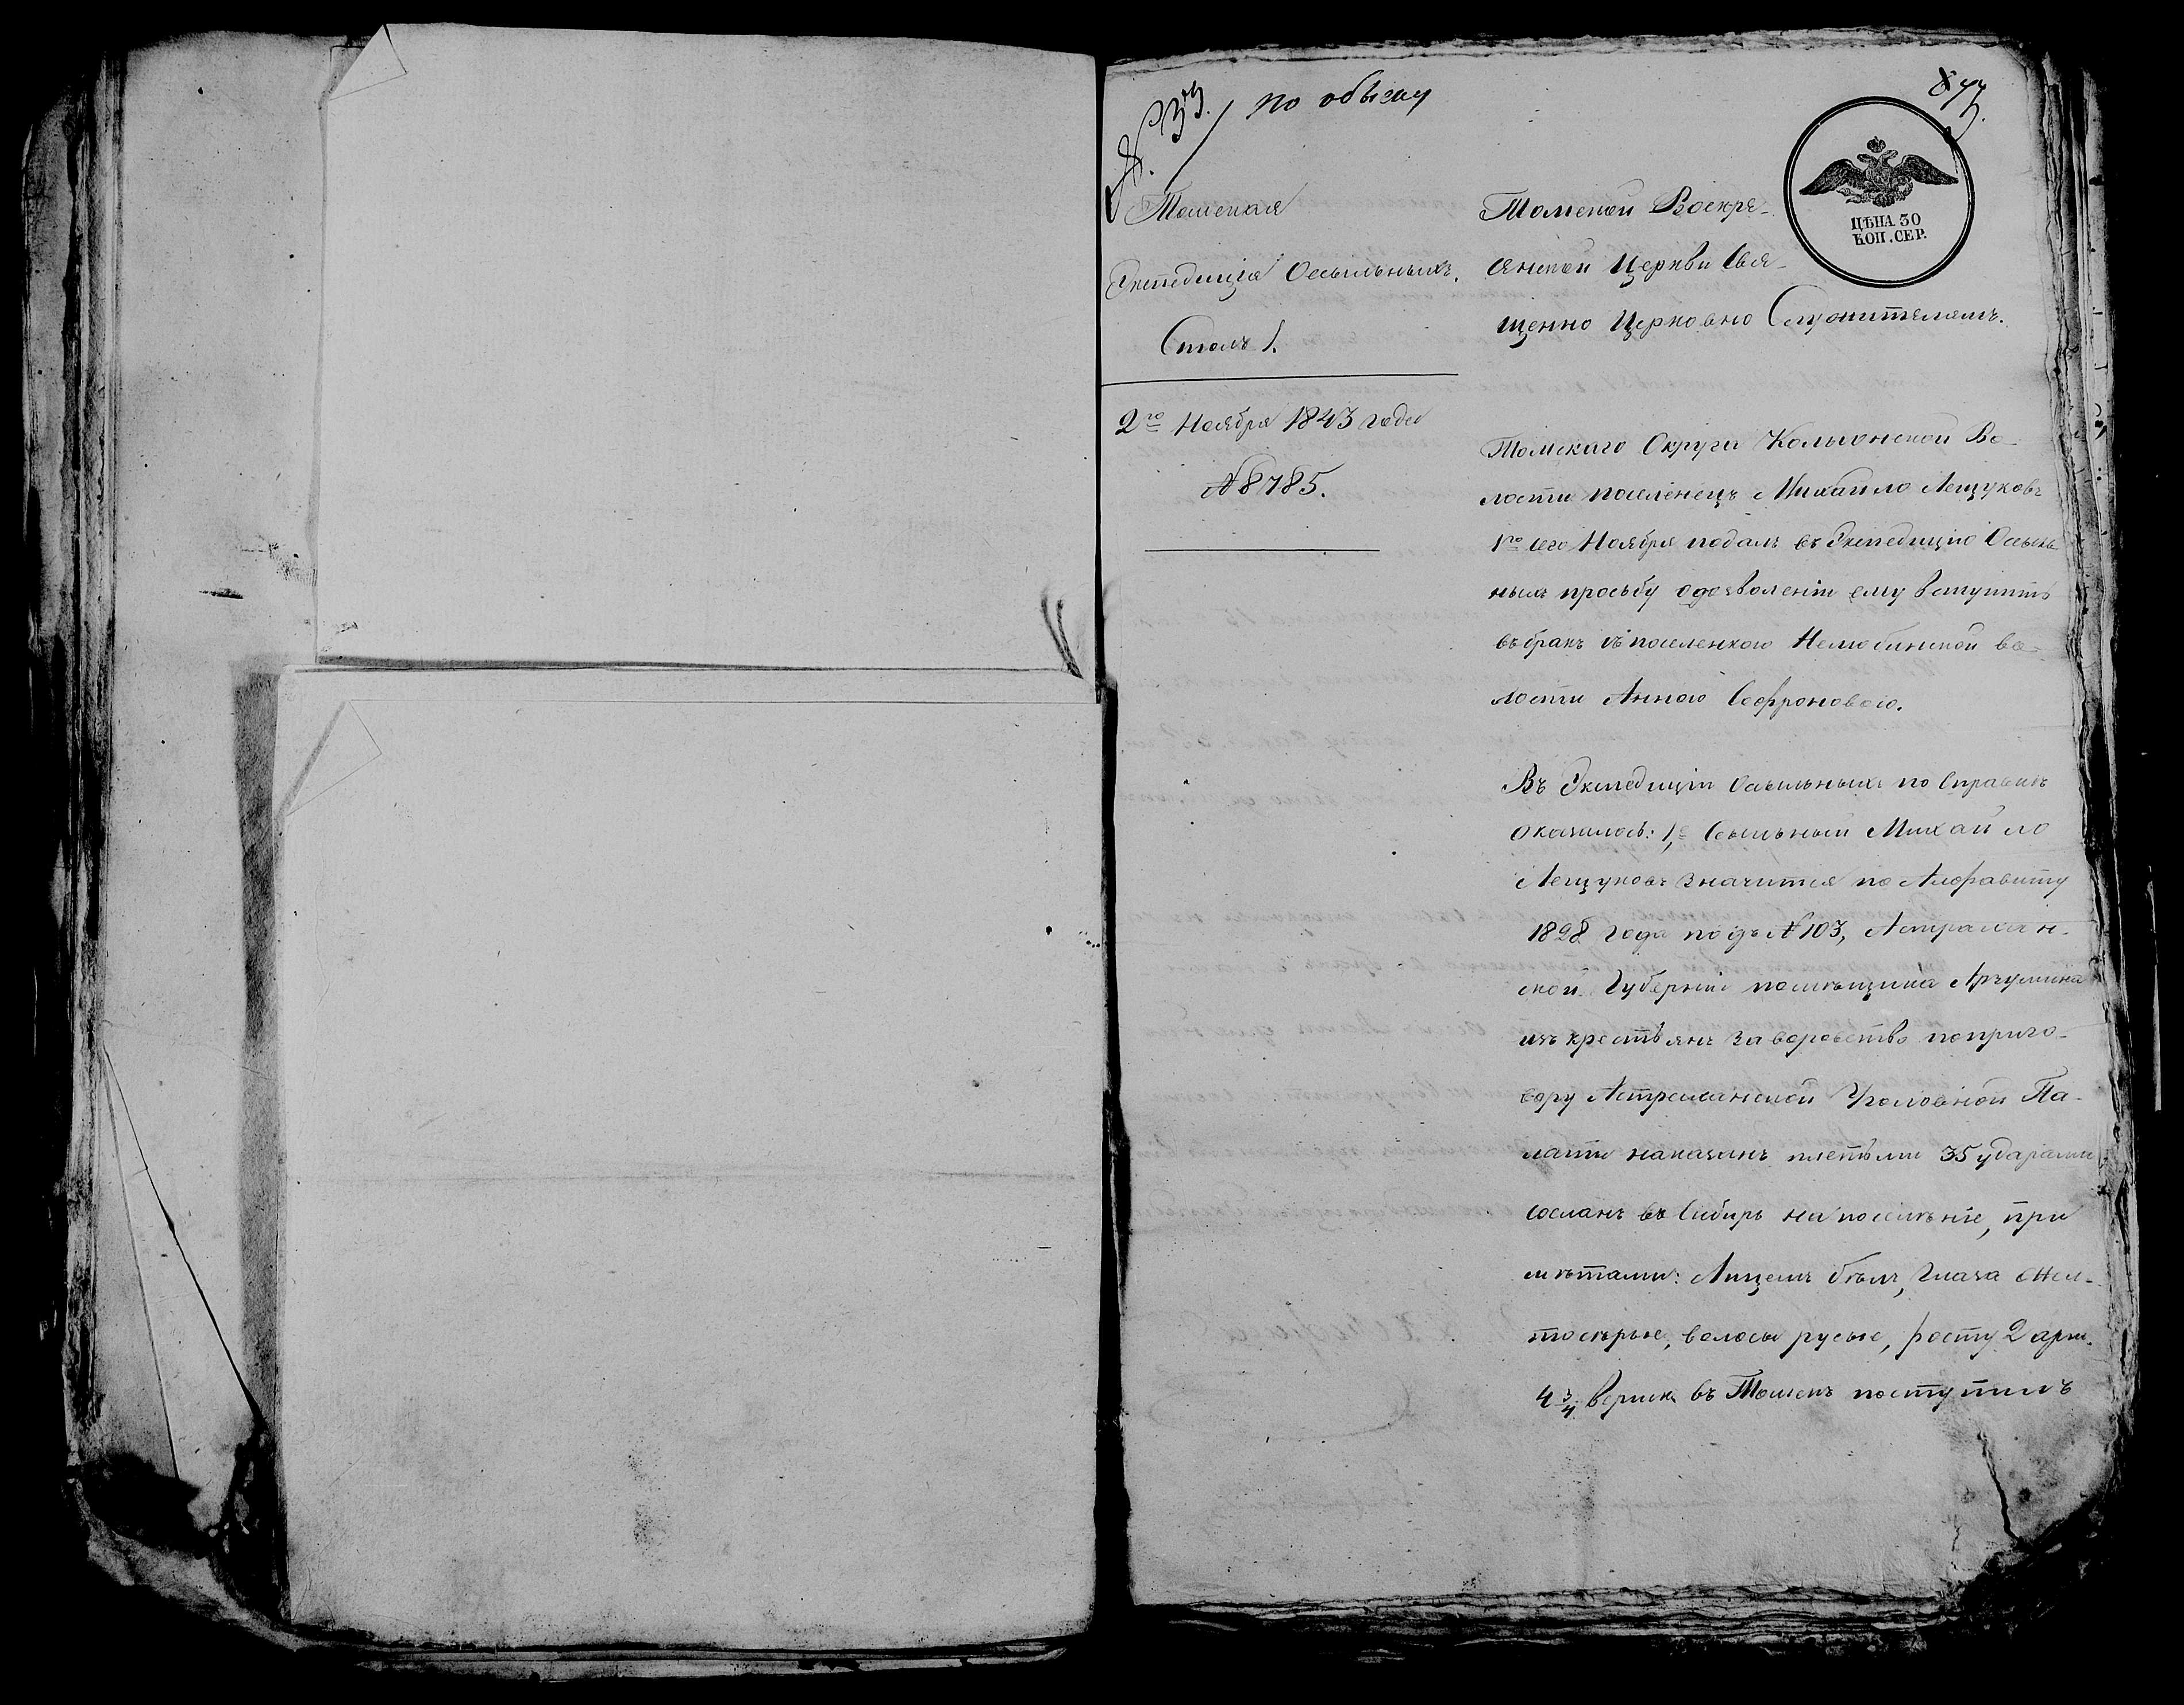 № 33.
по обыску
Томская
Экспедиція Ссыльныхъ.
Столъ 1.
2го Ноября 1843 года
№ 8785.
ЦѢНА 30
КОП. СЕР.
Томской Воскре-
сенской Церкви Свя-
щенно Церковно Служителямъ.
Томскаго Округа Колыонской Во-
лости поселенецъ Михайло Лещуковъ
1го сего Ноября подалъ въ Экспедицію Ссыль-
ныхъ просьбу о дозволеніи ему вступить
въ бракъ съ поселенкою Нелюбинской во-
лости Анною Сафроновою.
Въ Экспедиціи Ссыльныхъ по Справкѣ
оказалось: 1,е Ссыльный Михайло
Лещуковъ значится по Алфавиту
1828 года подъ № 103, Астрахан-
ской Губерніи помѣщика
изъ крестьянъ за воровство по приго-
вору Астраханской Уголовной Па-
латы наказанъ плетьми 35 ударами
сосланъ въ Сибирь на поселѣніе, при
мѣтами: Лицемъ бѣлъ, Глаза Жел-
тосѣрые, волосы русые, росту 2 арш.
4 3/4 вершк въ Томскъ поступилъ